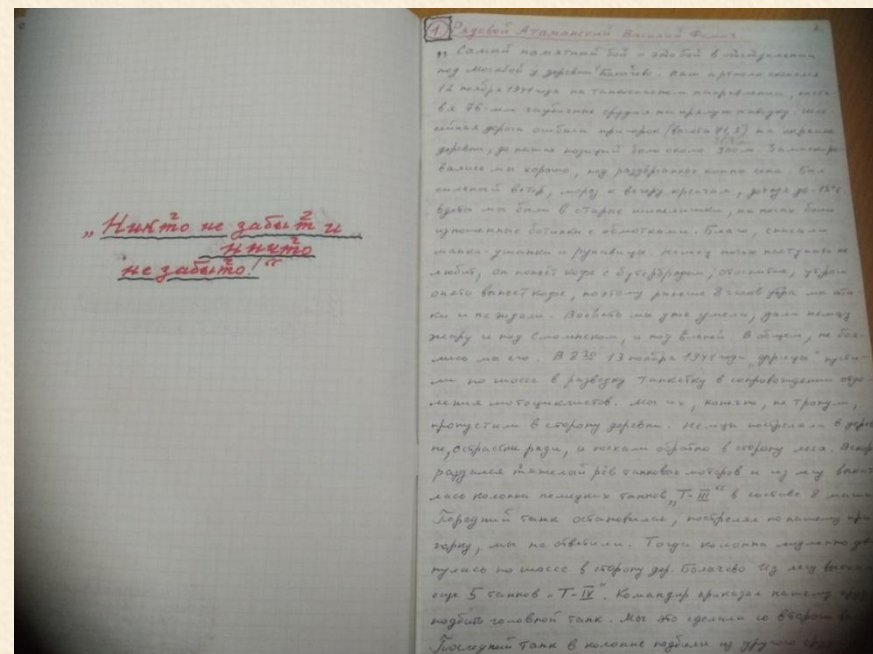 „Никто не забыт и
ничто
не забыто!“
1. Рядовой Атаманский Василий Фомич.
„ Самый памятный бой – это бой в отступлении
под Москвой у деревни Болычево. Наш артполк окопался
12 ноября 1941 года на танкоопасном направлении, поста-
вя 76-мм гаубичные орудия на прямую наводку. Шос-
сейная дорога огибала пригорок (высота 91,5) на окраине
деревни, до наших позиций было около 300м. Замаскиро-
вались мы хорошо, под разбросанные копны сена. Был
сильный ветер, мороз к вечеру крепчал, доходя до -15°С
одеты мы были в старые шинелишки, на ногах были
изношенные ботинки с обмотками. Благо,
шапки-ушанки и рукавицы. Немец ночью наступать не
любит, он попьёт кофе с бутербродом, утром
опять выпьет кофе, поэтому раньше 8 часов утра мы ата-
ки и не ждали. Воевать мы уже умели, дали немцу
жару и под Смоленском, и под Вязьмой. В общем, не боя-
лись мы его. В 8 30 13 ноября 1941 года „фрицы“ пусти-
ли по шоссе в разведку танкетку в сопровождении отде-
ления мотоциклистов. Мы их, конечно, не тронули,
пропустили в сторону деревни. Немцы постреляли в дерев
не, острастки ради, и поехали обратно в сторону леса. Вскор
раздался тяжелый рёв танковых моторов и из лесу выка
лась колонна немецких танков „Т-III“ в составе 8 маши
Передний танк остановился, пострелял по нашему при
горку, мы не ответили. Тогда колонна медленно дви
нулась по шоссе в сторону дер. Болычево. Из лесу
еще 5 танков „Т-IV“. Командир приказал нашему
подбить головной танк. Мы это сделали со второго
Последний танк в колонне подбили из другого